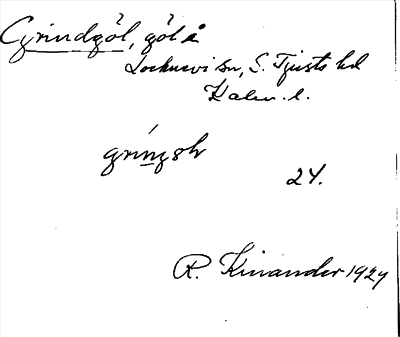 Grindgöl, göl å
Locknevi sn, S. Tjusts hd
Kalm. l.
24.
R. Kinander 1929